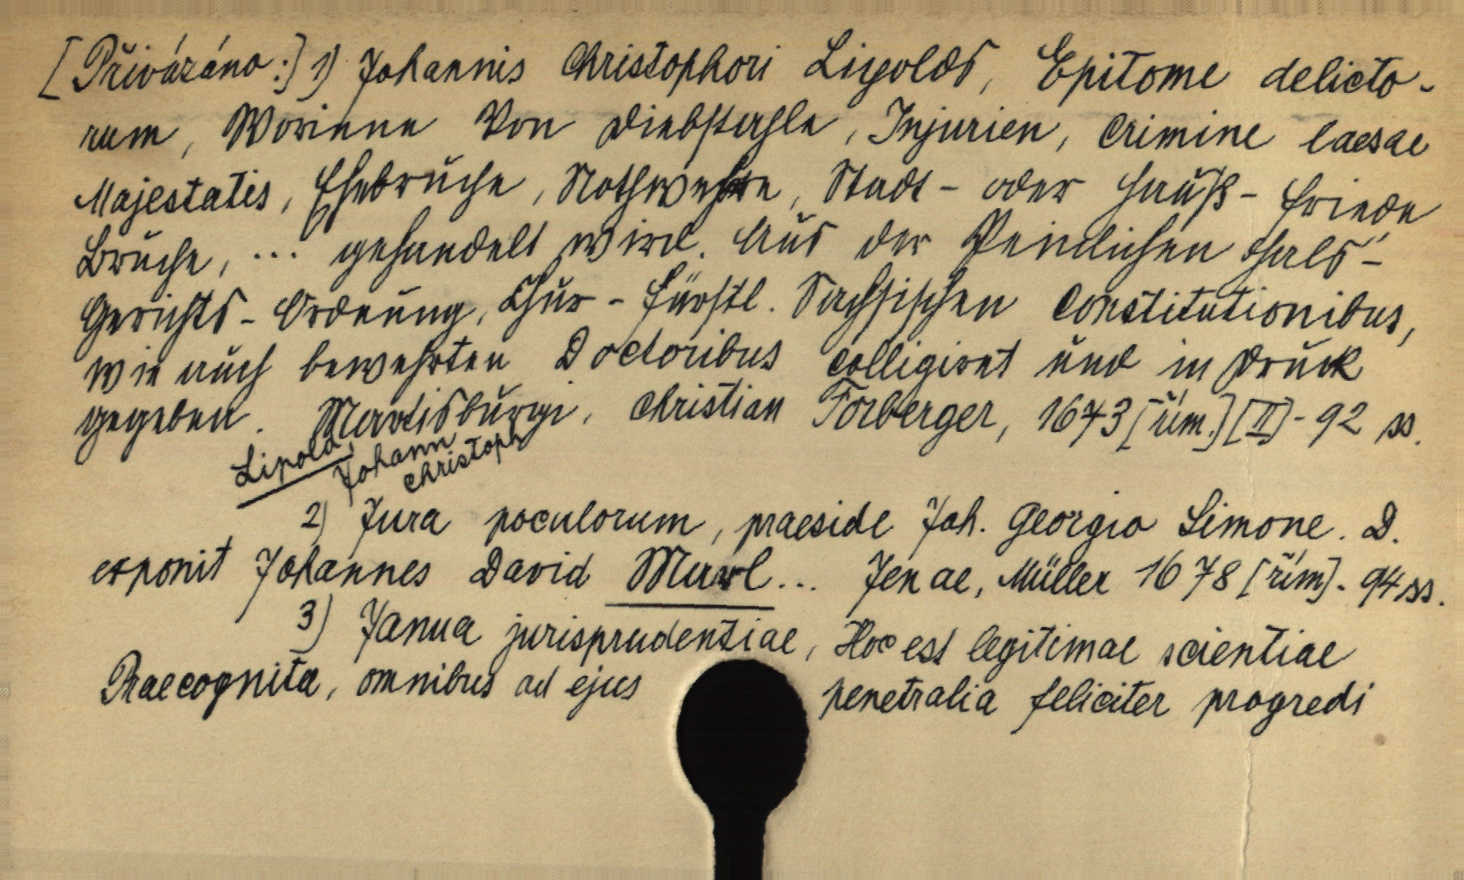 [Přivázáno:] 1) Johannis Christophori Lipolds, Epitome delicto-
rum, Worinne Von Diebstahle, Injurien, Crimine laesae
Majestatis, Ehebruche, Nothwehre, Stadt- oder Hauß- Friede
Bruche, ... gehandelt wird. Aus der Peinlichen Hals-
Gerichts- Ordnung, Chur- Fürstl. Sachsischen Constitutionibus,
wie auch bewehrten Doctoribus colligiret und in Druck
gegeben. Martisburgi, Christian Forberger, 1673 [řím.] [II]- 92 ss.
Lipold, Johann
Christoph
2) Jura poculorum, praeside Joh. Georgio Simone. D.
exponit Johannes David Marl... Jenae, Müller 1678 [řím]. 94 ss.
3) Janua jurisprudentiae, Hoc est legitimae scientiae
Praecognita, omnibus ad ejus penetralia feliciter progredi